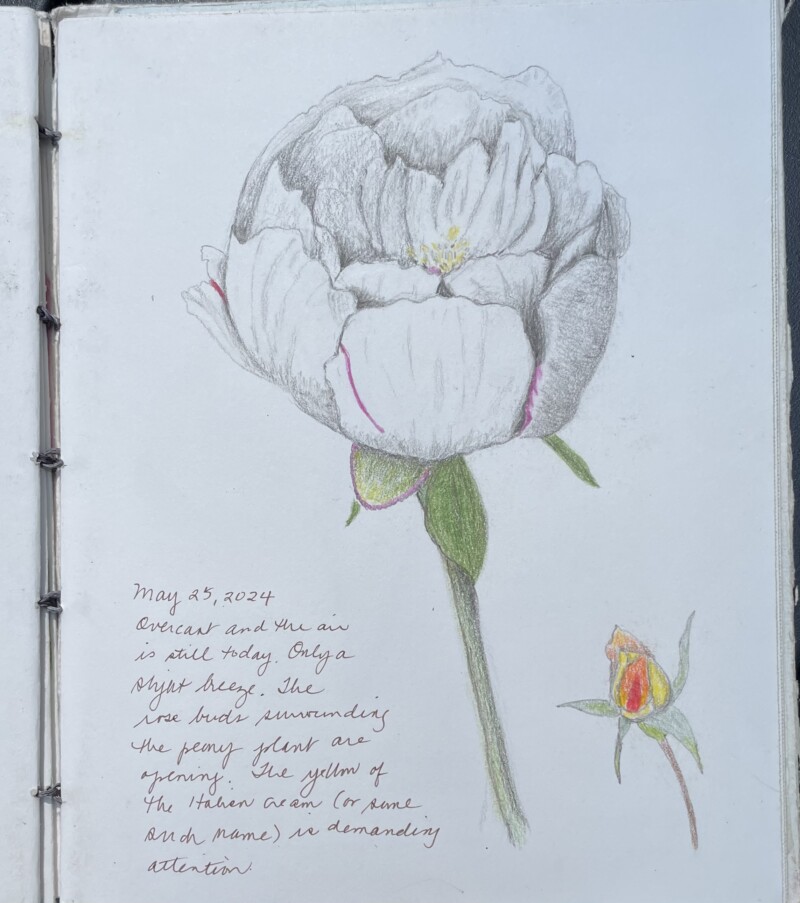 May 25, 2024
Overcast and the air
is still today. Only a
slight breeze. The
rose buds surrounding
the peony plant are
opening. The yellow of
the Italian cream (or some
such name) is demanding
attention.